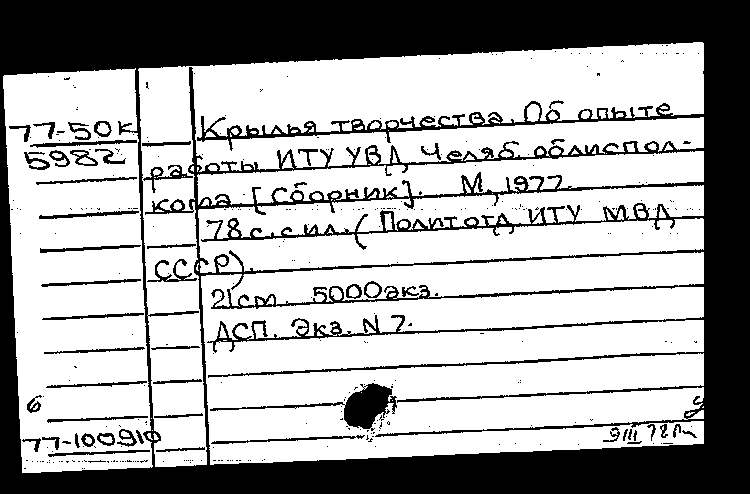 77-50к Крылья творчества. Об опыте
5982 работы ИТУ УВД Челяб. облиспол-
кома [Сборник]. М., 1977.
78 с. с ил. (Политотд ИТУ МВД
СССР).
21 см. 5000 экз.
ДСП. Экз. N 7.
6
77-100910
9 III